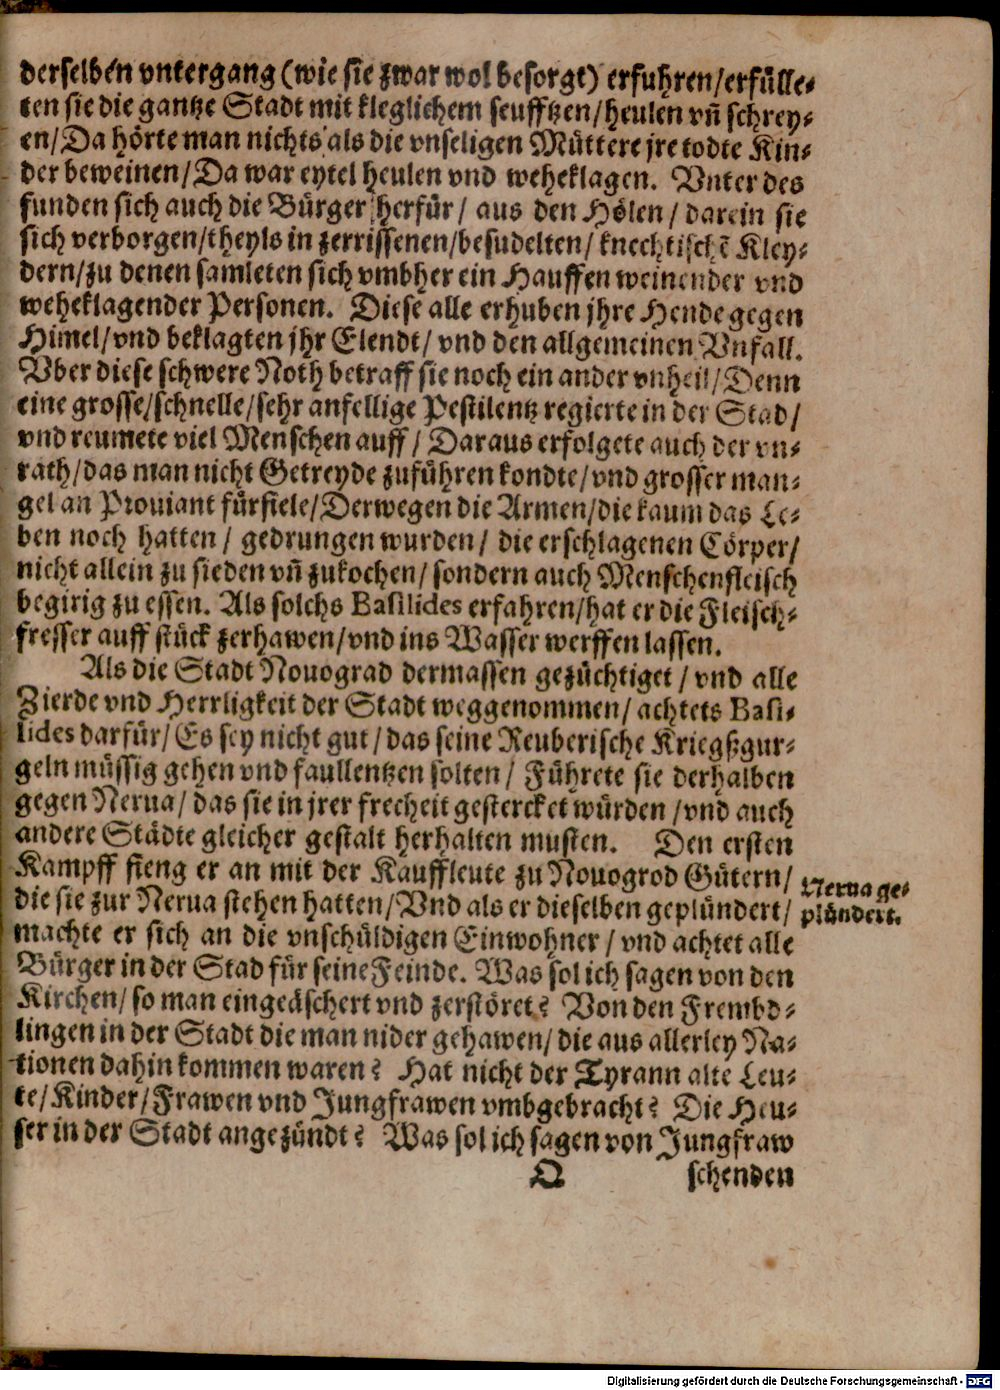 derselben vntergang (wie sie zwar wol besorgt) erfuhren/erfülle-
ten sie die gantze Stadt mit kleglichem seufftzen/heulen vñ schrey-
en/Da hörte man nichts als die vnseligen Müttere jre todte Kin-
der beweinen/Da war eytel heulen vnd weheklagen. Vnter des
funden sich auch die Bürger herfür/ aus den Hölen/ darein sie
sich verborgen/theyls in zerrissenen/besudelten/ knechtischẽ Kley-
dern/zu denen samleten sich vmbher ein Hauffen weinender vnd
weheklagender Personen. Diese alle erhuben jhre Hende gegen
Himel/vnd beklagten jhr Elendt/ vnd den allgemeinen Vnfall.
Vber diese schwere Noth betraff sie noch ein ander vnheil/Denn
eine grosse/schnelle/sehr anfellige Pestilentz regierte in der Stad/
vnd reumete viel Menschen auff/ Daraus erfolgete auch der vn-
rath/das man nicht Getreyde zuführen kondte/vnd grosser man-
gel an Prouiant fürfiele/Derwegen die Armen/die kaum das Le-
ben noch hatten/ gedrungen wurden/ die erschlagenen Cörper/
nicht allein zu sieden vñ zukochen/ sondern auch Menschenfleisch
begirig zu essen. Als solchs Basilides erfahren/hat er die Fleisch-
fresser auff stück zerhawen/vnd ins Wasser werffen lassen.
Als die Stadt Nouograd dermassen gezüchtiget/ vnd alle
Zierde vnd Herrligkeit der Stadt weggenommen/ achtets Basi-
lides darfür/ Es sey nicht gut/ das seine Reuberische Kriegßgur-
geln müssig gehen vnd faullentzen solten/ Führete sie derhalben
gegen Nerua/ das sie in jrer frecheit gestercket würden/vnd auch
andere Städte gleicher gestalt herhalten musten. Den ersten
Kampff fieng er an mit der Kauffleute zu Nouogrod Gütern/
die sie zur Nerua stehen hatten/Vnd als er dieselben geplündert/
Nerua ge-
plündert.
machte er sich an die vnschüldigen Einwohner/ vnd achtet alle
Bürger in der Stad für seine Feinde. Was sol ich sagen von den
Kirchen/ so man eingeäschert vnd zerstöret? Von den Frembd-
lingen in der Stadt die man nider gehawen/ die aus allerley Na-
tionen dahin kommen waren? Hat nicht der Tyrann alte Leu-
te/Kinder/Frawen vnd Jungfrawen vmbgebracht? Die Heu-
ser in der Stadt angezündt? Was sol ich sagen von Jungfraw
Q schenden
Digitalisierung gefördert durch die Deutsche Forschungsgemeinschaft - DFG